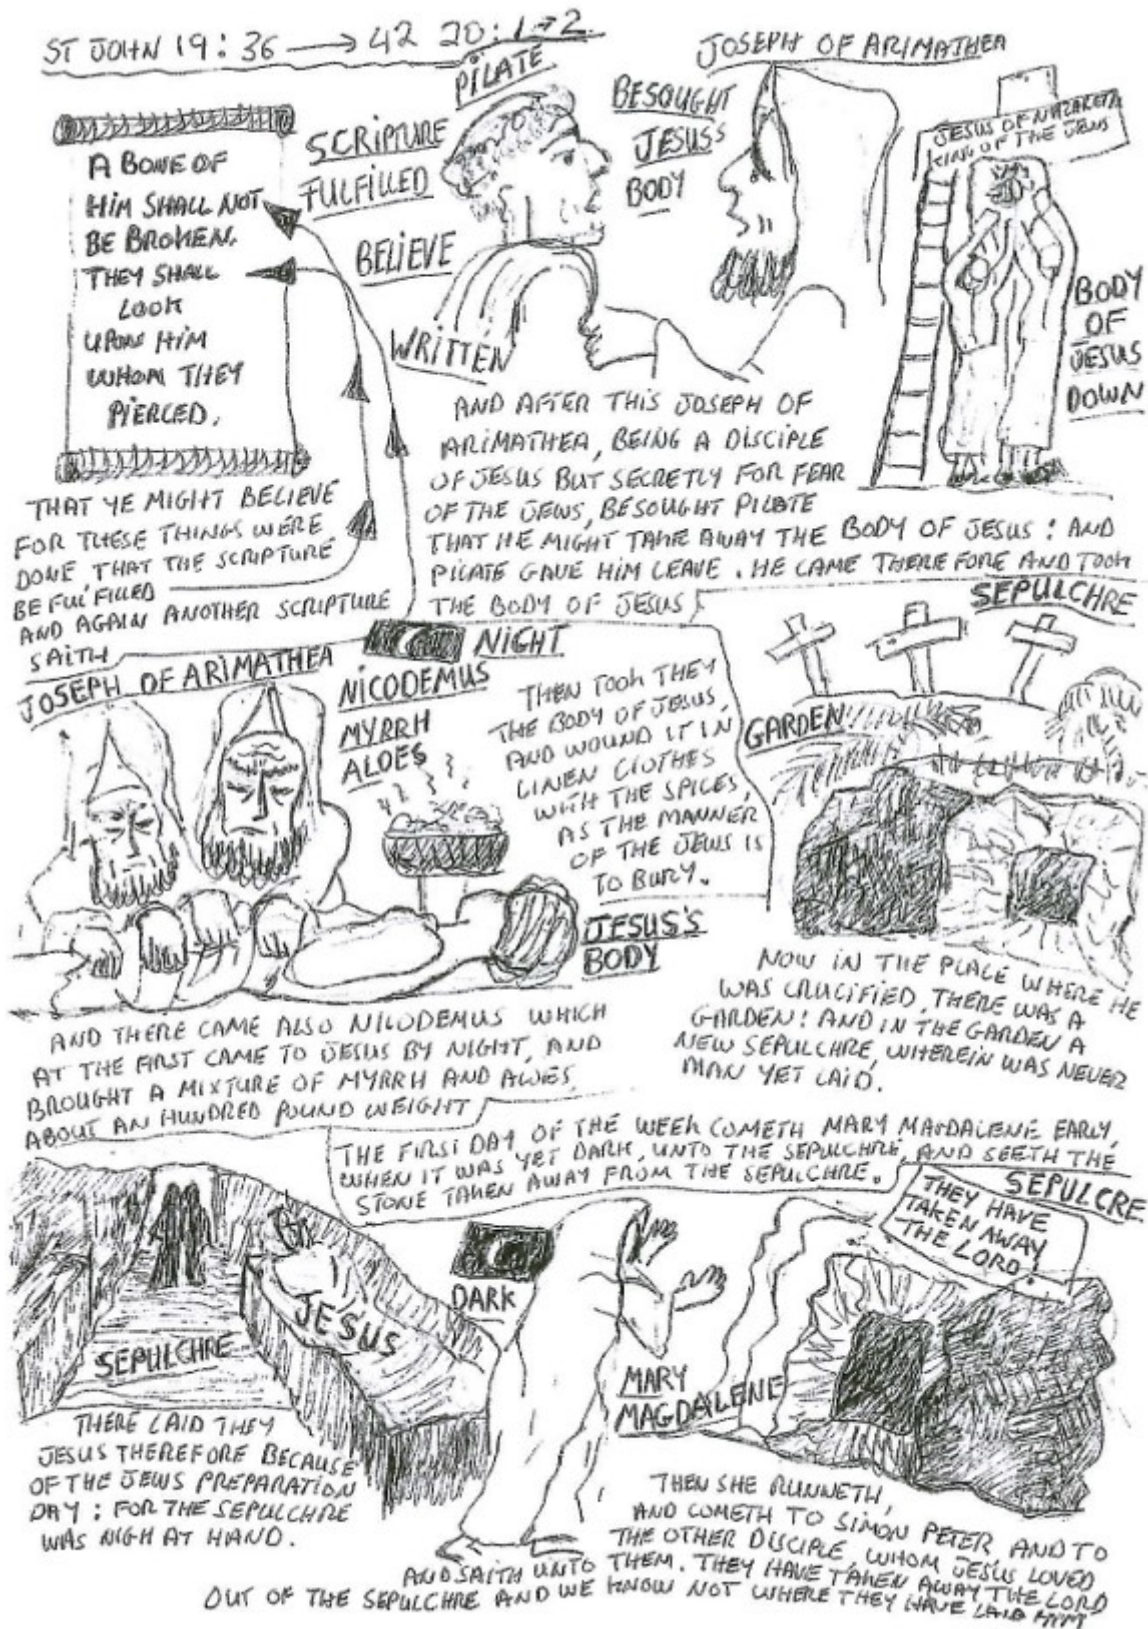 ST JOHN 19:36 → 42 20:1→2
PILATE
JOSEPH OF ARIMATHEA
A BONE OF
HIM SHALL NOT
BE BROKEN.
THEY SHALL
LOOK
UPON HIM
WHOM THEY
PIERCED.
SCRIPTURE
FULFILLED
BELIEVE
WRITTEN
BESOUGHT
JESUS'S
BODY
JESUS OF NAZARETH
KING OF THE JEWS
BODY
OF
JESUS
DOWN
THAT YE MIGHT BELIEVE
FOR THESE THINGS WERE
DONE, THAT THE SCRIPTURE
BE FULFILLED
AND AGAIN ANOTHER SCRIPTURE
SAITH
AND AFTER THIS JOSEPH OF
ARIMATHEA, BEING A DISCIPLE
OF JESUS BUT SECRETLY FOR FEAR
OF THE JEWS, BESOUGHT PILATE
THAT HE MIGHT TAKE AWAY THE BODY OF JESUS: AND
PILATE GAVE HIM LEAVE. HE CAME THERE FORE AND TOOK
THE BODY OF JESUS
JOSEPH OF ARIMATHEA
NIGHT
NICODEMUS
MYRRH
ALOES
THEN TOOK THEY
THE BODY OF JESUS,
AND WOUND IT IN
LINEN CLOTHES
WITH THE SPICES,
AS THE MANNER
OF THE JEWS IS
TO BURY.
JESUS'S
BODY
SEPULCHRE
GARDEN
AND THERE CAME ALSO NICODEMUS WHICH
AT THE FIRST CAME TO JESUS BY NIGHT, AND
BROUGHT A MIXTURE OF MYRRH AND ALOES,
ABOUT AN HUNDRED POUND WEIGHT
NOW IN THE PLACE WHERE HE
WAS CRUCIFIED, THERE WAS A
GARDEN: AND IN THE GARDEN A
NEW SEPULCHRE, WHEREIN WAS NEVER
MAN YET LAID.
THE FIRST DAY OF THE WEEK COMETH MARY MAGDALENE EARLY,
WHEN IT WAS YET DARK, UNTO THE SEPULCHRE, AND SEETH THE
STONE TAKEN AWAY FROM THE SEPULCHRE.
SEPULCHRE
JESUS
DARK
MARY
MAGDALENE
SEPULCRE
THEY HAVE
TAKEN AWAY
THE LORD
THERE LAID THEY
JESUS THEREFORE BECAUSE
OF THE JEWS PREPARATION
DAY: FOR THE SEPULCHRE
WAS NIGH AT HAND.
THEN SHE RUNNETH,
AND COMETH TO SIMON PETER AND TO
THE OTHER DISCIPLE, WHOM JESUS LOVED
AND SAITH UNTO THEM. THEY HAVE TAKEN AWAY THE LORD
OUT OF THE SEPULCHRE AND WE KNOW NOT WHERE THEY HAVE LAID HIM